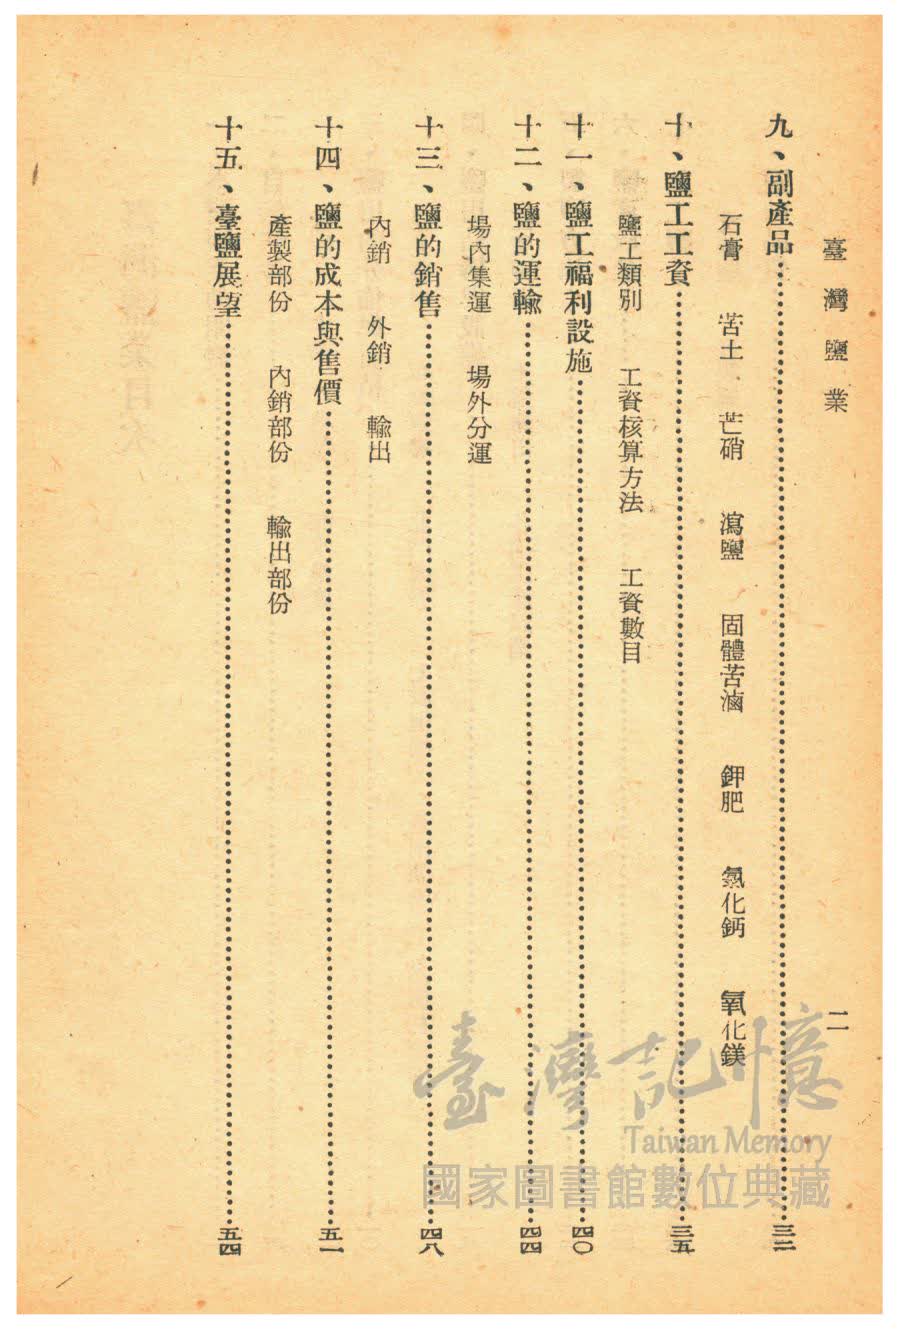 臺灣鹽業 二
九、副產品……三二
石膏 苦土 芒硝 瀉鹽 固體苦滷 鉀肥 氯化鈣 氧化鎂
十、鹽工工資……三五
鹽工類別 工資核算方法 工資數目
十一、鹽工福利設施……四〇
十二、鹽的運輸……四四
場內集運 場外分運
十三、鹽的銷售……四八
內銷 外銷 輸出
十四、鹽的成本與售價……五一
產製部份 內銷部份 輸出部份
十五、臺鹽展望……五四
臺灣記憶
Taiwan Memory
國家圖書館數位典藏